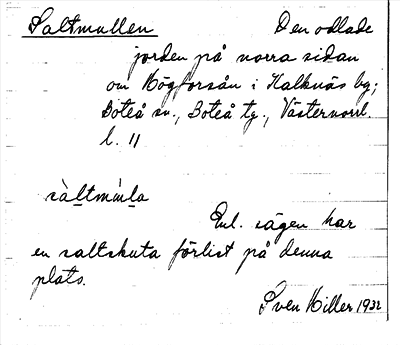 Saltmullen Den odlade
jorden på norra sidan
om Högforsån i Kalknäs by;
Boteå sn., Boteå tg., Västernorrl.
l. 11
sàltmúla
Enl. sägen har
en saltskuta förlist på denna
plats.
Sven Hiller 1932